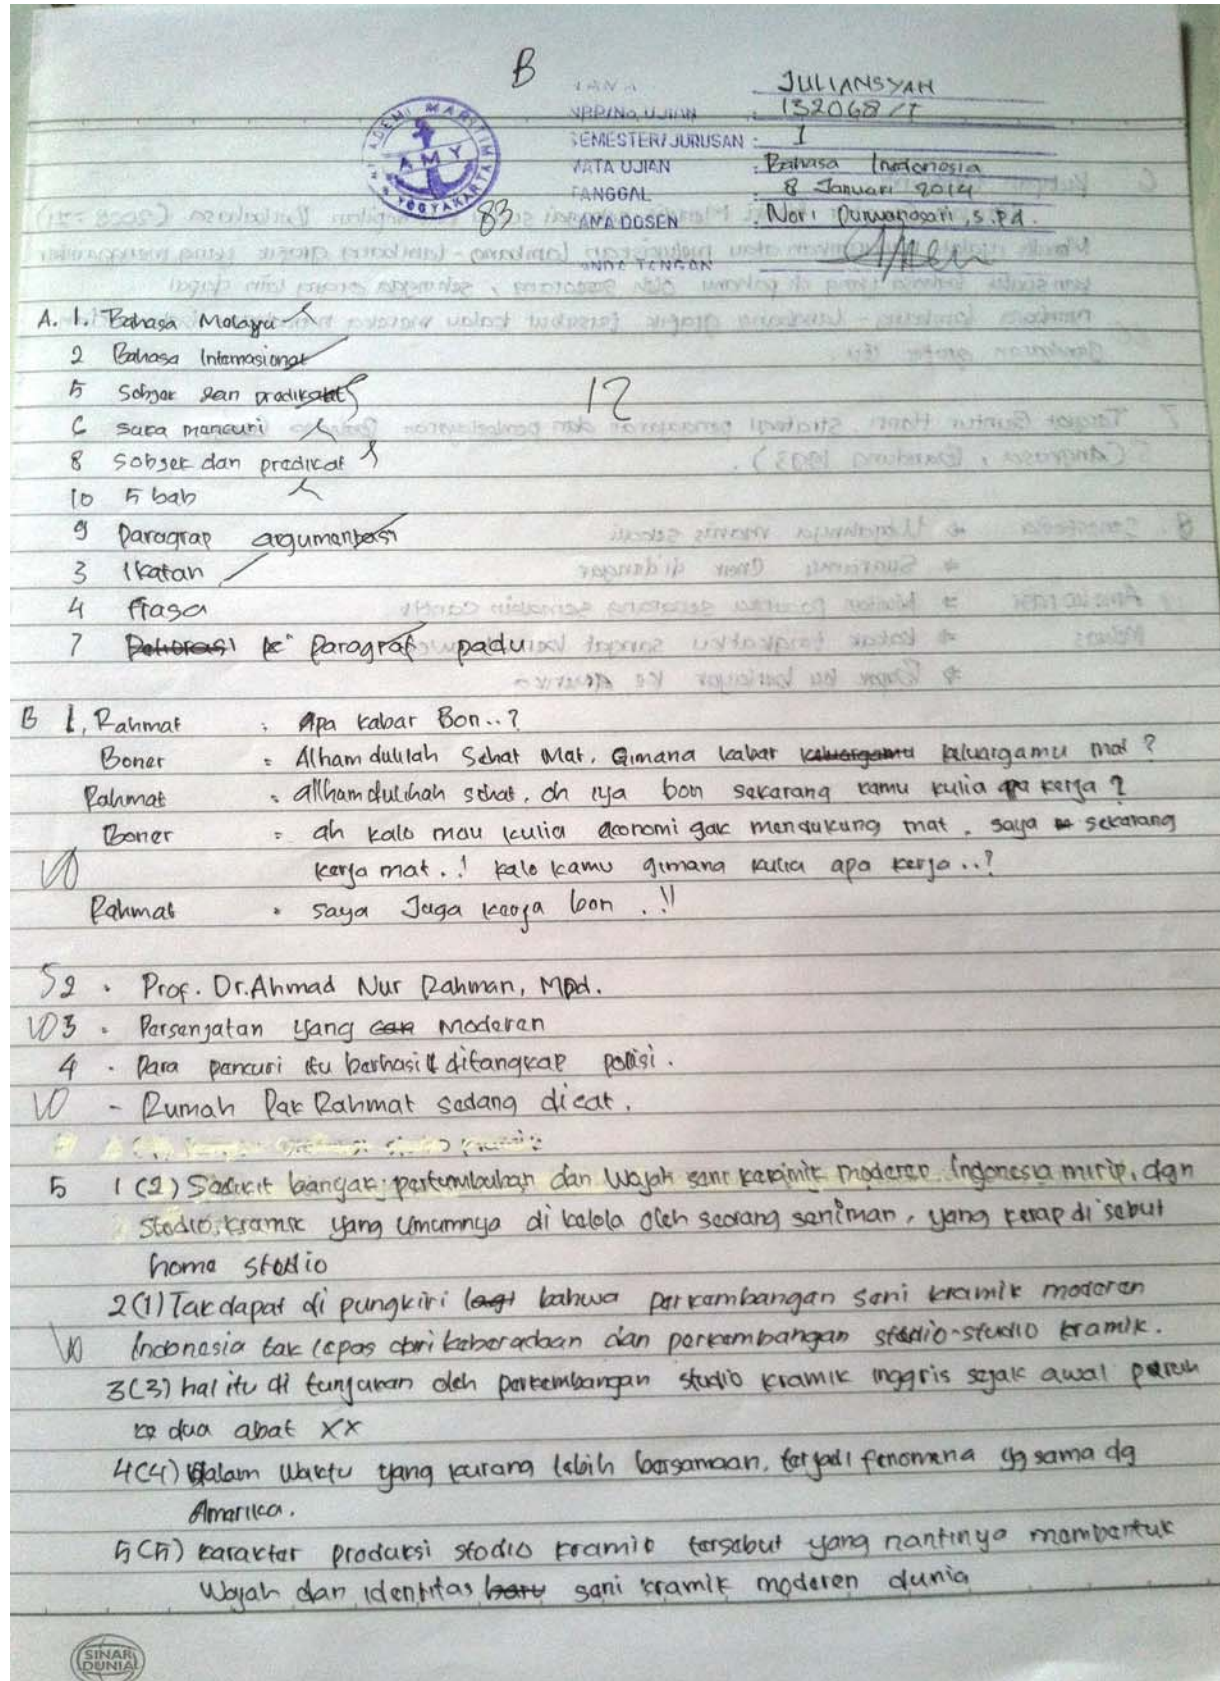 B
NAMA JULIANSYAH
NRP/No. UJIAN 132068/T
SEMESTER/JURUSAN : I
MATA UJIAN : Bahasa Indonesia
TANGGAL : 8 Januari 2014
NAMA DOSEN : Nori Purwanasari, S.Pd.
TANDA TANGAN :
AKADEMI MARITIM YOGYAKARTA
AMY
83
A. 1. Bahasa Melayu
2 Bahasa Internasional
5 Sobjek dan predikat
12
6 suka mencuri
8 Sobjek dan predikat
10 5 bab
9 Paragrap argumentasi
3 Ikatan
4 frasa
7 Paragraf padu
B 1, Rahmat : Apa kabar Bon..?
Boner : Alhamdulilah Sehat Mat. Gimana kabar keluargamu keluargamu mat ?
Rahmat : allhamdulihah sehat. oh iya bon sekarang kamu kulia apa kerja ?
Boner : ah kalo mau kulia economi gak mendukung mat. saya sekarang
kerja mat..! kalo kamu gimana kulia apa kerja..?
10
Rahmat : saya Juga kerja bon ..!!
5 2 . Prof. Dr. Ahmad Nur Rahman, MPd.
10 3 . Persenjatan yang moderen
4 - Para pencuri itu berhasil ditangkap polisi.
10 - Rumah Pak Rahmat sedang dicat.
5 1 (2) Sedikit banyak, pertumbuhan dan Wajah seni keramik moderen Indonesia mirip, dgn
stodio, kramik yang Umumnya di kelola oleh seorang seniman, yang kerap di sebut
home stodio
2(1) Tak dapat di pungkiri lagi bahwa perkembangan seni kramik moderen
10 Indonesia tak lepas dari keberadaan dan perkembangan stodio-studio kramik.
3(3) hal itu di tunjukan oleh perkembangan studio kramik inggris sejak awal paruh
ke dua abat XX
4(4) dalam waktu yang kurang lebih bersamaan, terjadi fenomena yg sama dg
Amerika.
5(5) karakter produksi stodio kramik tersebut yang nantinya membentuk
Wajah dan identitas baru seni kramik moderen dunia
SINAR DUNIA